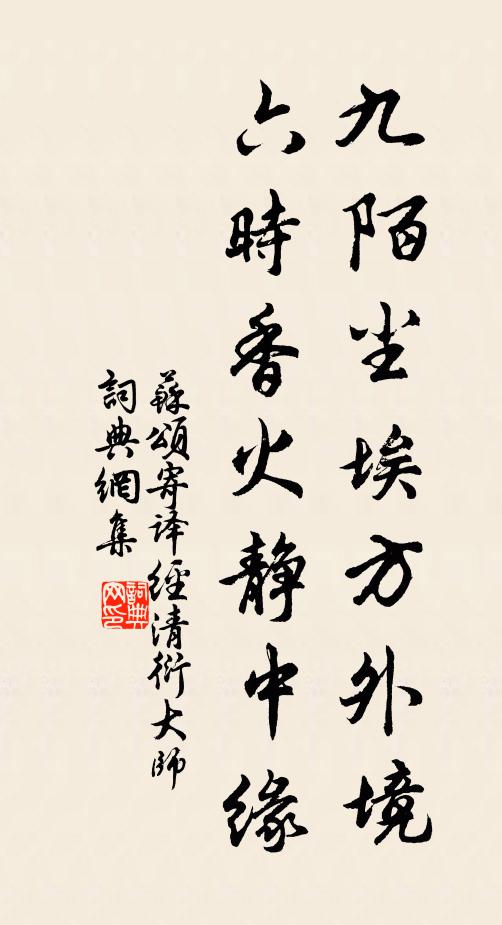 九陌尘埃方外境
六時香火静中缘
蘇頌寄译經清衍大師
詞典網集
詞典网印